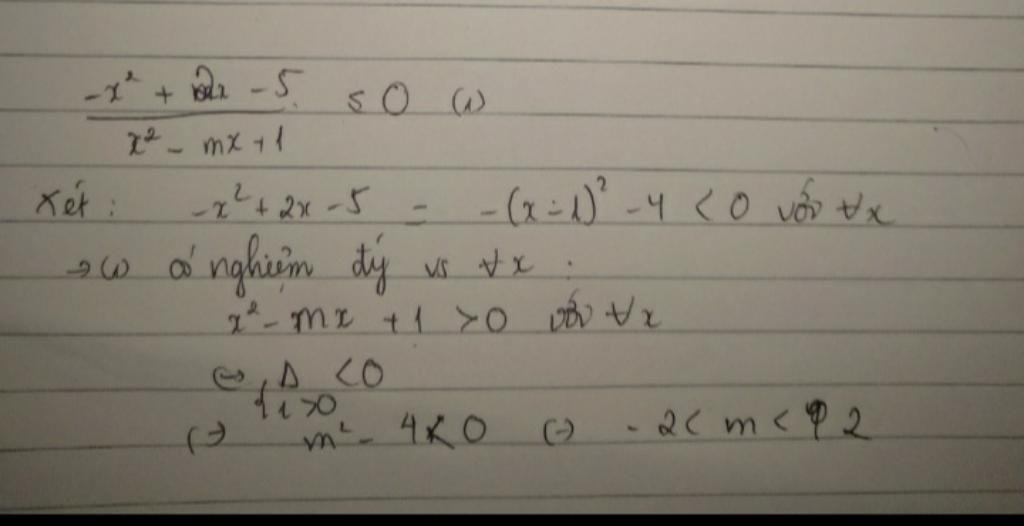 -x² + 2x - 5 / x² - mx + 1 ≤ 0 (1)
Xét : -x² + 2x - 5 = -(x - 1)² - 4 < 0 với ∀x
→ (1) có nghiệm đý vs ∀x :
x² - mx + 1 > 0 với ∀x
⇔ { Δ < 0
1 > 0
(=) m² - 4 < 0 (=) -2 < m < 2